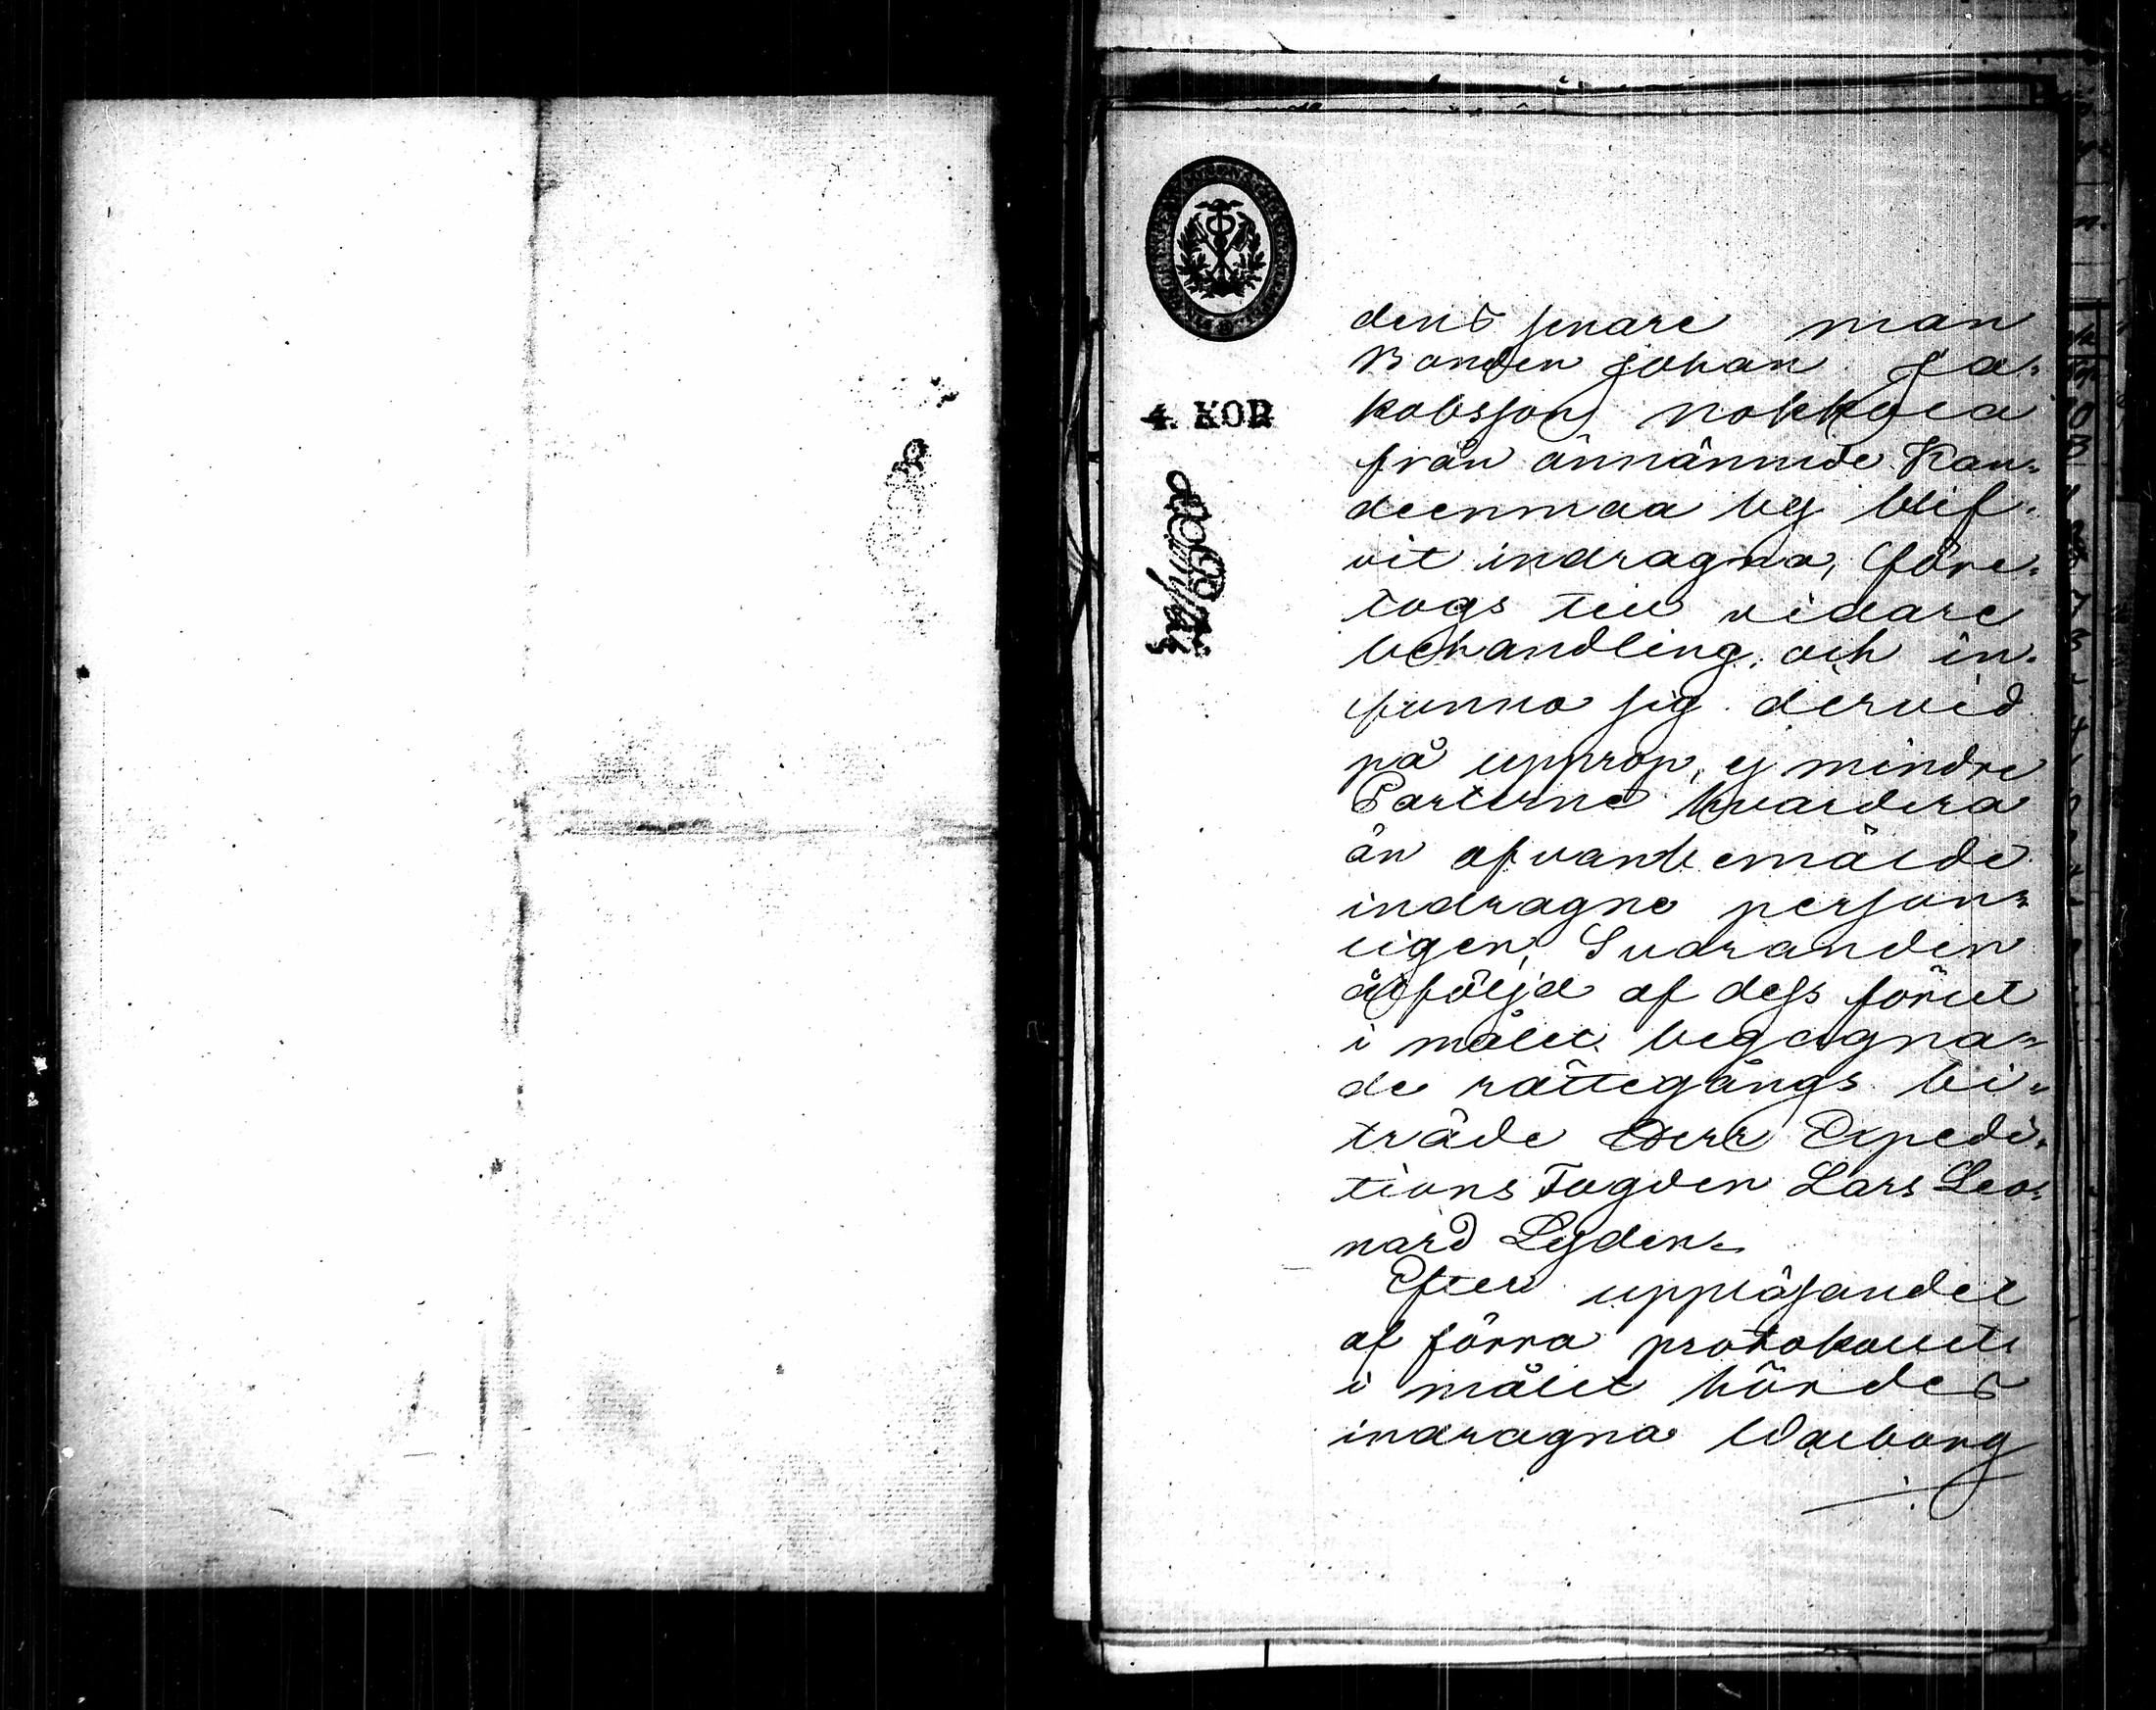 4. KOR
dens senare man
Bonden Johan Ja-
kobsson Nokkola
från ännämnde Kan-
deenmaa by blif-
vit indragna, före-
togs till vidare
behandling, och in-
funno sig dervid
på upprop, ej mindre
Parterne hvardera
än ofvanbemälde
indragne person-
ligen, Svaranden
åtföljd af dess förut
i målet begagna-
de rättegångs bi-
träde Herr Expedi-
tions Fogden Lars Leo-
nard Lyden.
Efter uppläsandet
af förra protokollet
i målet hördes
indragna Walborg